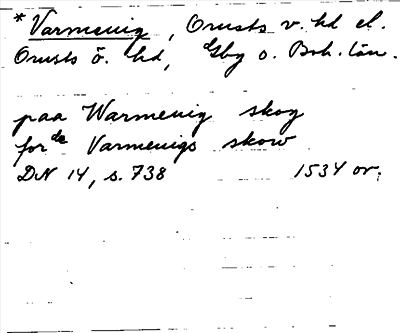 *Varmevig, Orusts v. hd el.
Orusts ö. hd, Gbg o. Boh. län.
paa Warmevig skog
for de Varmevigs skow
DN 14, s. 738 1534 or.